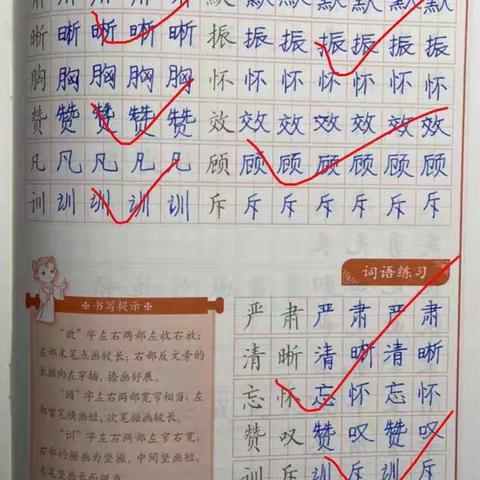 默 默 默 默 默 默
晰 晰 晰 晰 晰 振 振 振 振 振 振 振
胸 胸 胸 胸 胸 怀 怀 怀 怀 怀 怀 怀
赞 赞 赞 赞 赞 效 效 效 效 效 效 效
凡 凡 凡 凡 凡 顾 顾 顾 顾 顾 顾 顾
训 训 训 训 训 斥 斥 斥 斥 斥 斥 斥
词语练习
严 肃 严 肃 严 肃
清 晰 清 晰 清 晰
忘 怀 忘 怀 忘 怀
赞 叹 赞 叹 赞 叹
训 斥 训 斥 训 斥
书写提示
字左右两部左收右放;
左部末笔点画较长;右部反文旁的
长撇向左穿插,捺画舒展。
字左右两部宽窄相当;左
部首笔横画短,次笔撇画较长。
“训”字左右两部左窄右宽;
右部的撇画为竖撇,中间竖画短,
末笔竖画长而挺直。